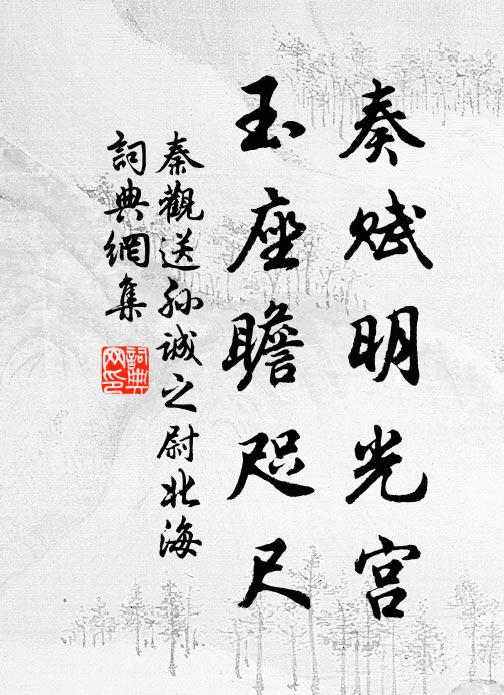 奏赋明光宫
玉座瞻咫尺
秦觀送孙诚之尉北海
詞典網集
詞典网印